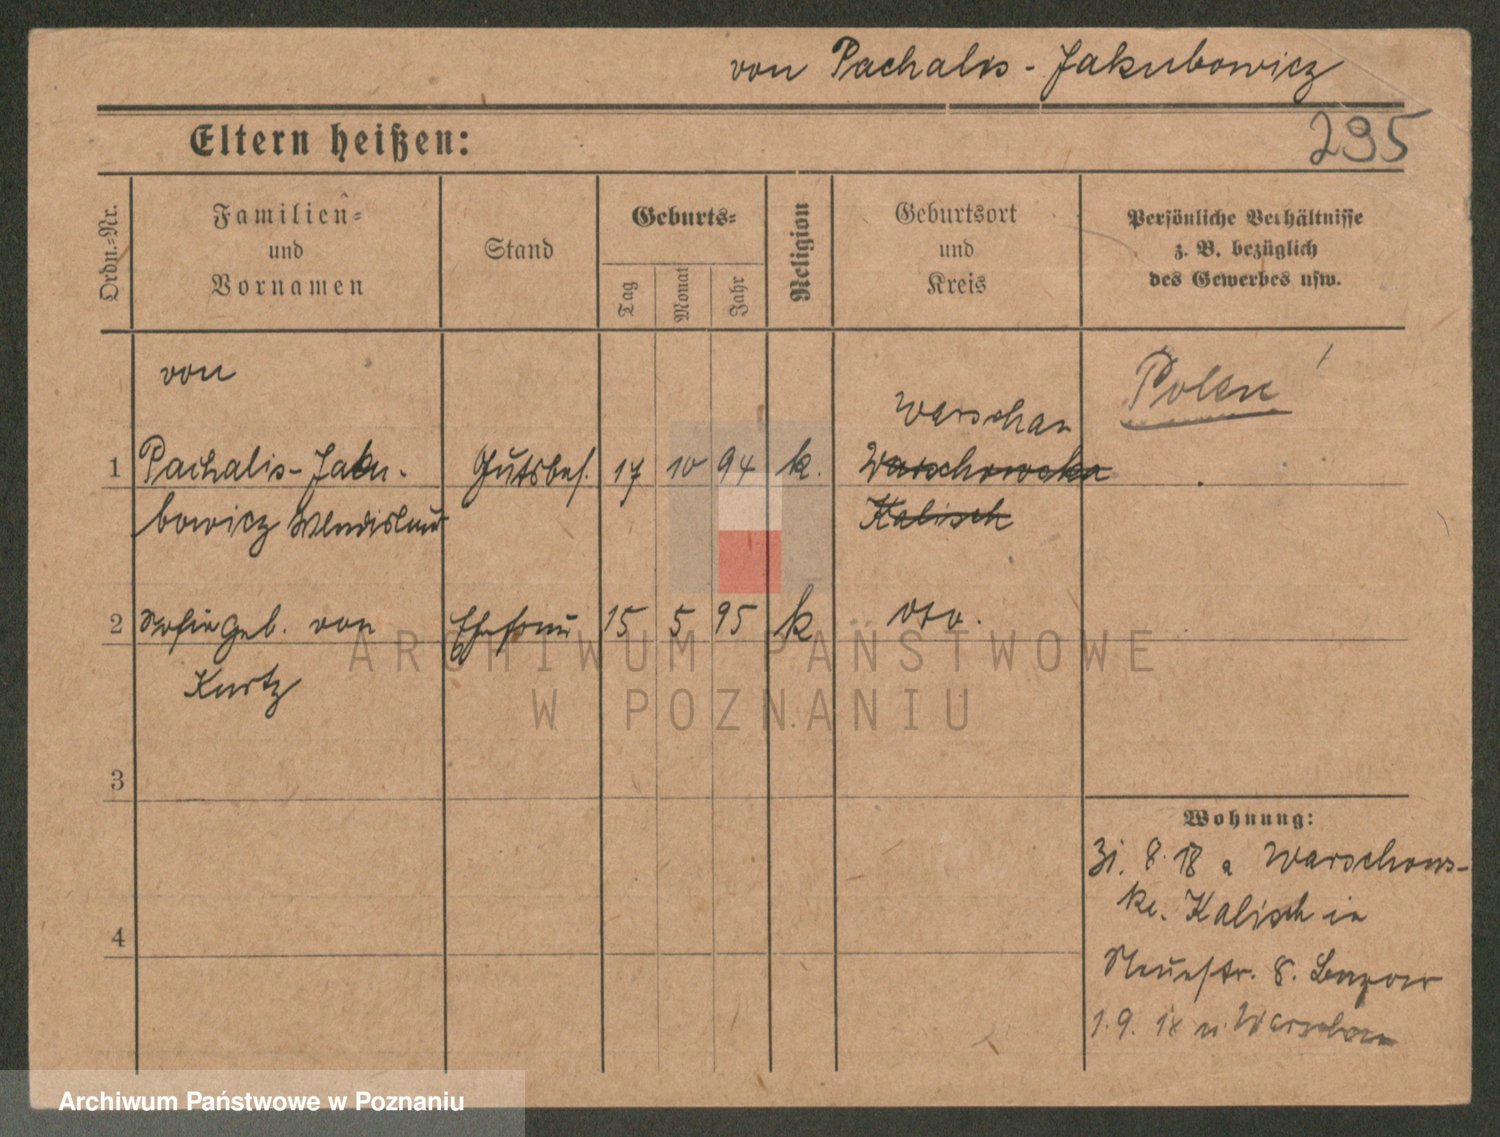 von Pachalis-Jakubowicz
295
Eltern heißen:
Ordn.-Nr.
Familien-
und
Vornamen
Stand
Geburts-
Tag
Monat
Jahr
Religion
Geburtsort
und
Kreis
Persönliche Verhältnisse
z. B. bezüglich
des Gewerbes usw.
von
Polen
Warschau
1 Pachalis-Jaku- Gutsbes. 17 10 94 k. Warschowska
bowicz Wladislaus Kalisch
2 Sofie geb. von Ehefrau 15 5 95 k dto.
Kurtz
3
4
Wohnung:
Zi. 8. 18 a Warschows-
ke. Kalisch in
Neuestr. 8.
1. 9. 18 n. Warschau
ARCHIWUM PAŃSTWOWE
W POZNANIU
Archiwum Państwowe w Poznaniu